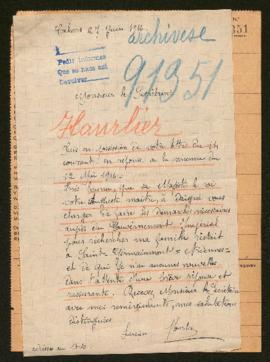 Cahors le 7 Juin 1916
archivese
Pedir informes
Que se nace así
91351
351
Monsieur le Secrétaire
Haurlier
Suis en possession de votre lettre du
courant, en réponse à la mienne du
12 Mai 1916.
Très heureux que sa Majesté le roi
votre Auguste maitre, a Daigné vous
charger de faire les démarches nécessaires
auprès du Gouvernement Impérial
pour rechercher ma famille restait
à Saint
et de qui je n'en aucunes nouvelles
dans l'attente d'une bonne réponse et
rassurante. Recevez Monsieur le Secrétaire
avec mes remerciements, mes salutations
distinguées
Lucien